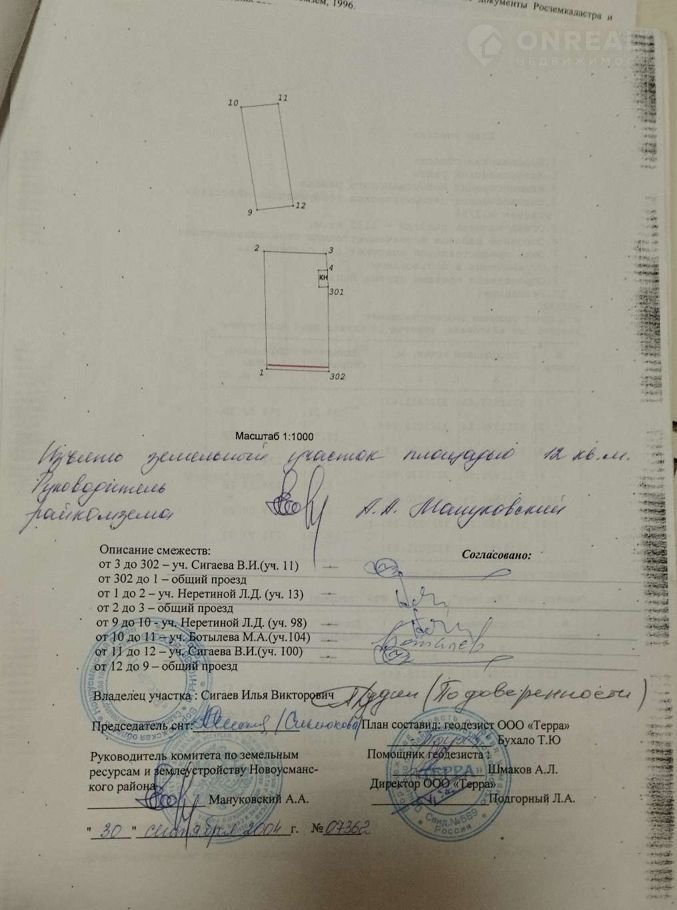 документы Росземкадастра и
1996.
ONREAL
НЕДВИЖИМОСТЬ
10 11
9 12
2 3
4
КН
301
1 302
Масштаб 1:1000
Изъять земельный участок площадью 12 кв.м.
Руководитель
райкомзема А.А. Мануковский
Описание смежеств: Согласовано:
от 3 до 302 – уч. Сигаева В.И.(уч. 11)
от 302 до 1 – общий проезд
от 1 до 2 – уч. Неретиной Л.Д. (уч. 13)
от 2 до 3 – общий проезд
от 9 до 10 - уч. Неретиной Л.Д. (уч. 98)
от 10 до 11 – уч. Ботылева М.А.(уч.104)
от 11 до 12 – уч. Сигаева В.И.(уч. 100)
от 12 до 9 – общий проезд
Владелец участка : Сигаев Илья Викторович (По доверенности)
Председатель снт: План составил: геодезист ООО «Терра»
Бухало Т.Ю
Руководитель комитета по земельным Помощник геодезиста
ресурсам и землеустройству Новоусманс- Шмаков А.Л.
кого района Директор ООО «Терра»
Мануковский А.А. Подгорный Л.А.
"ТЕРРА"
Свид.№569
Россия
" 30 " сентября 2004 г. № 07362